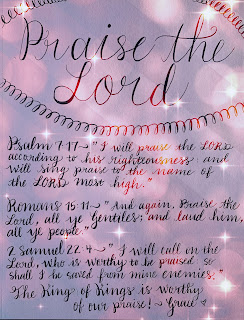 Praise the
Lord
Psalm 7:17~ "I will praise the LORD
according to his righteousness: and
will sing praise to the name of
the LORD most high."
Romans 15:11~ "And again, Praise the
Lord, all ye Gentiles; and laud him,
all ye people."
2 Samuel 22:4~ "I will call on the
Lord, who is worthy to be praised: so
shall I be saved from mine enemies."
"The King of Kings is worthy
of our praise! ~Grace